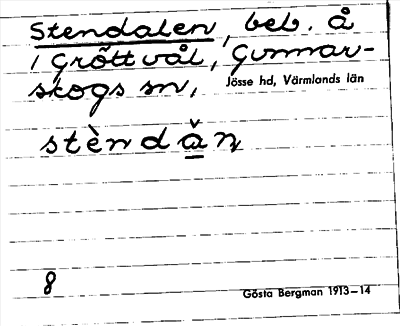 Stendalen, beb. å
i Gröttvål, Gunnar-
skogs sn, Jösse hd, Värmlands län
stèndǎ̠n
8
Gösta Bergman 1913–14